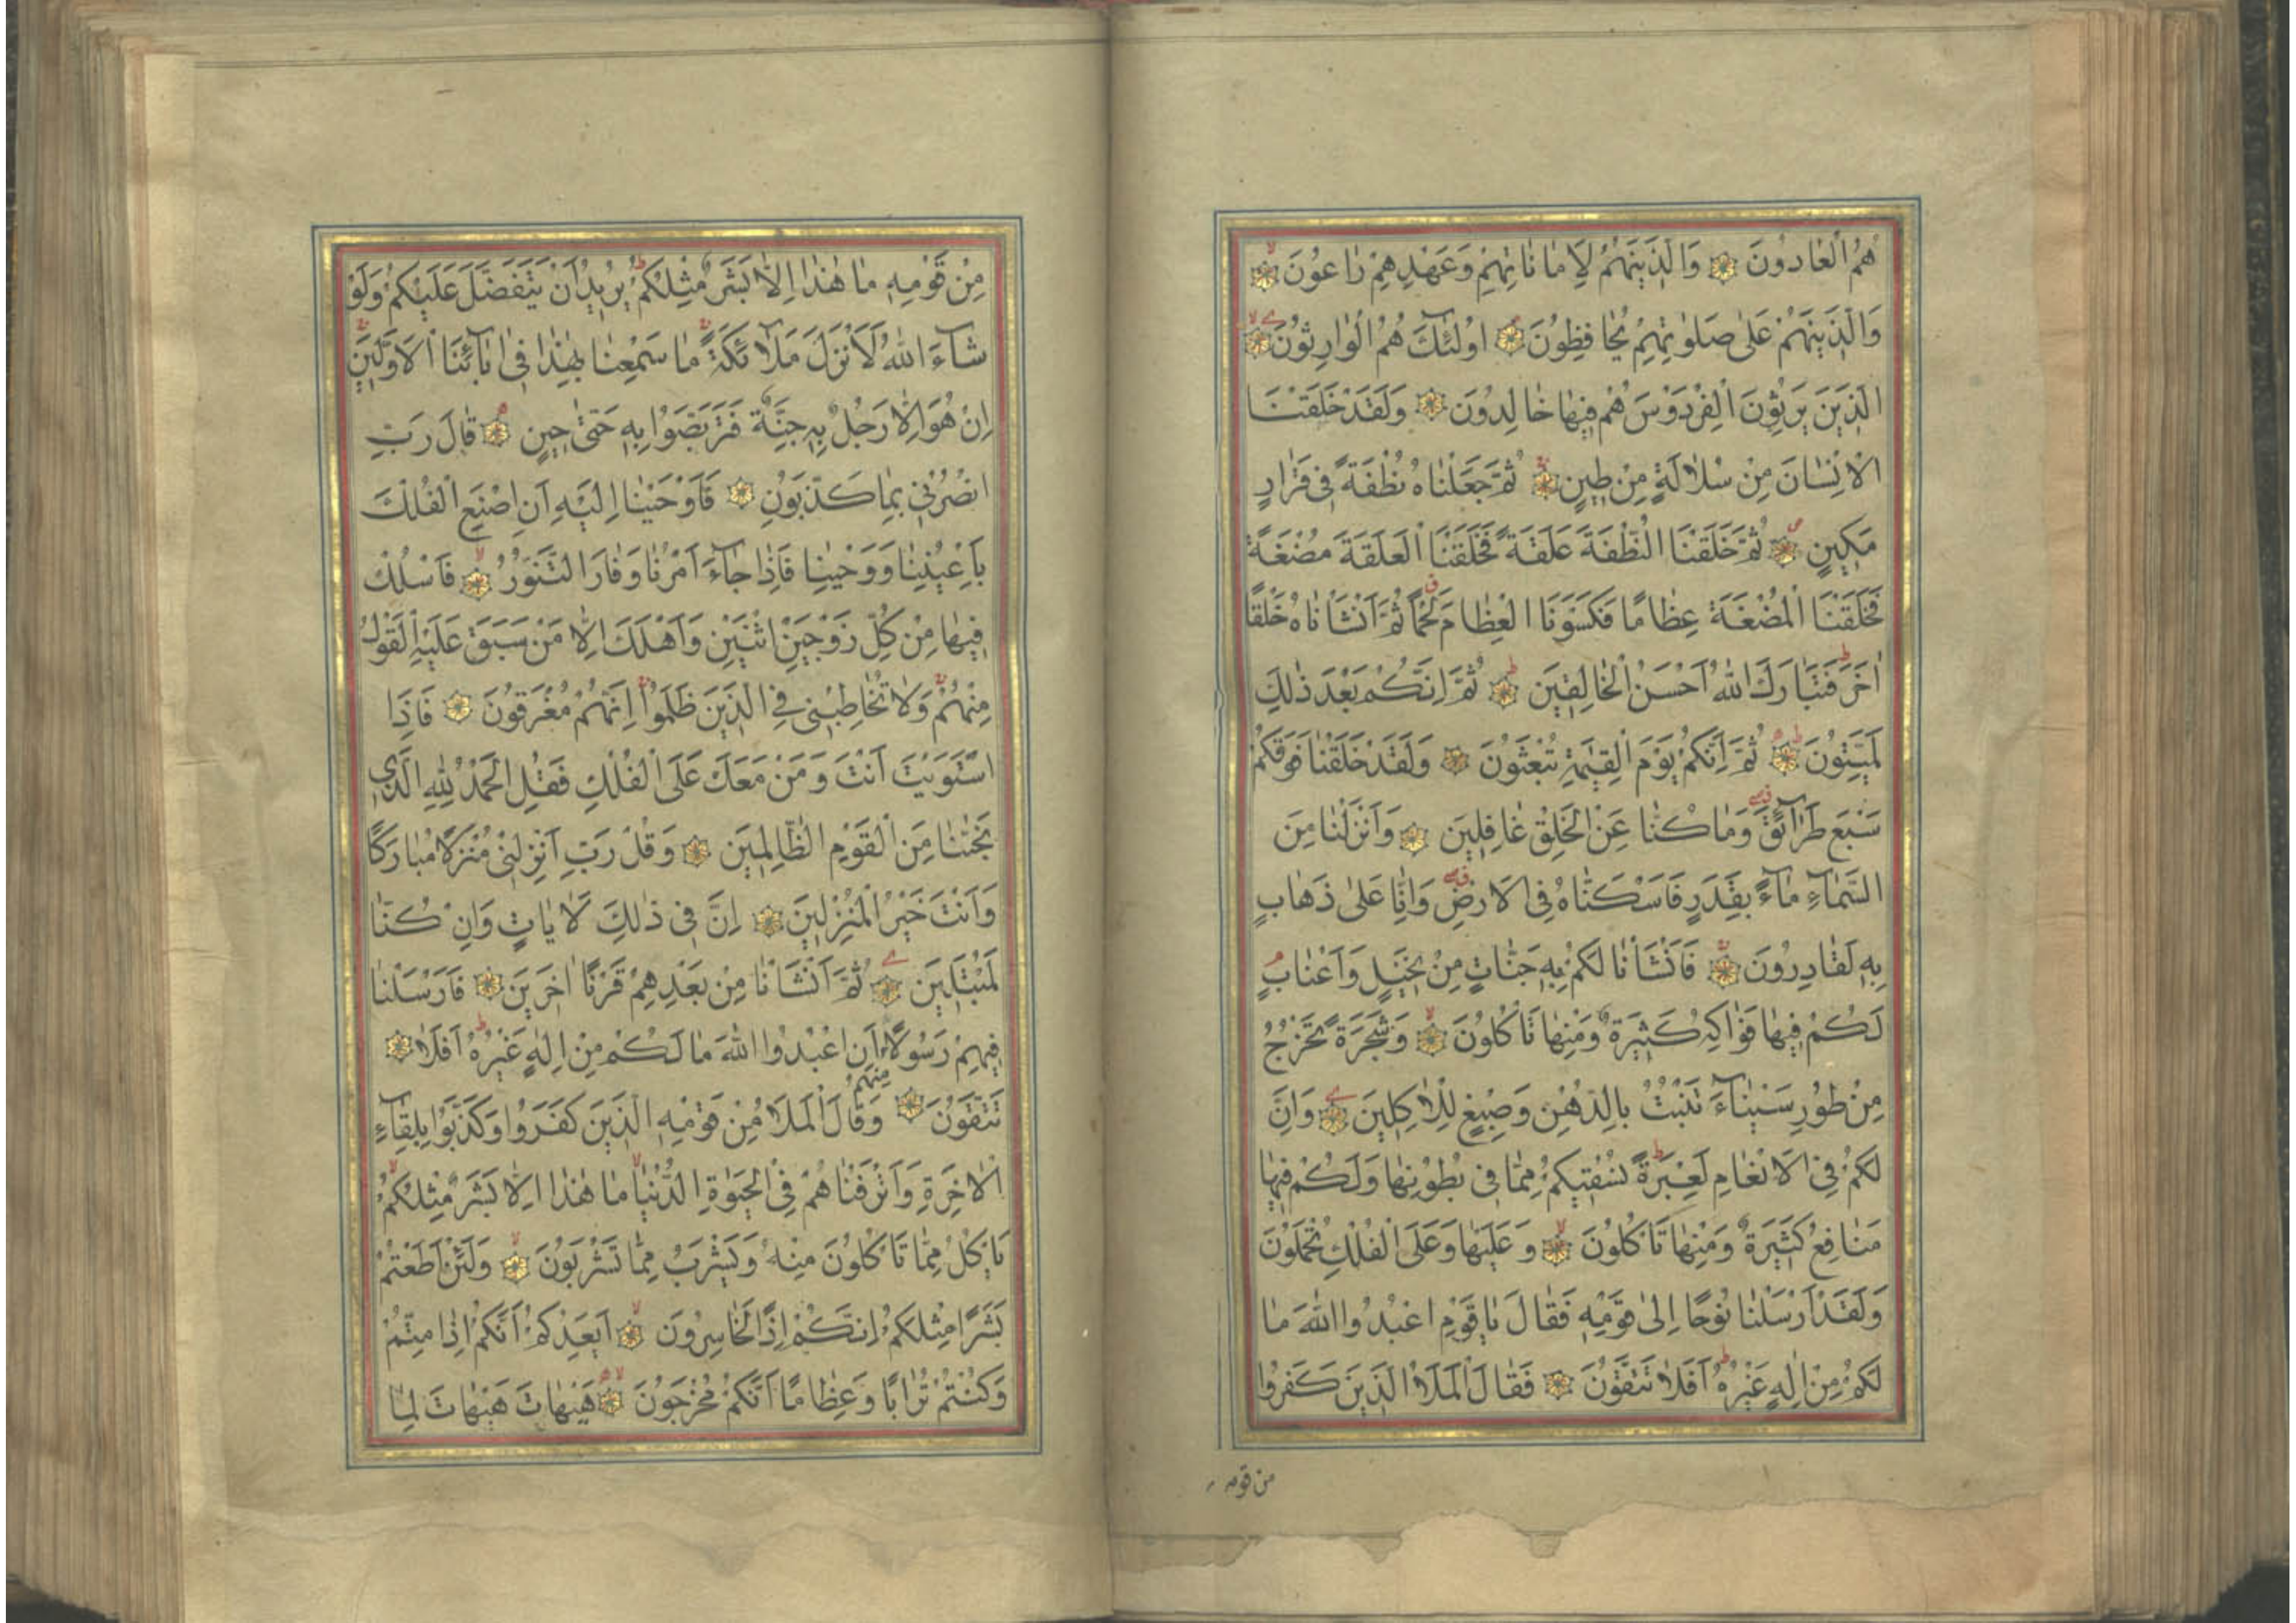 هُمُ الْعَادُونَ وَالَّذِينَهُمْ لِاَمَانَاتِهِمْ وَعَهْدِهِمْ رَاعُونَ
وَالَّذِينَهُمْ عَلٰى صَلَوٰتِهِمْ يُحَافِظُونَ اُولٰئِكَ هُمُ الْوَارِثُونَ
الَّذِينَ يَرِثُونَ الْفِرْدَوْسَ هُمْ فِيهَا خَالِدُونَ وَلَقَدْ خَلَقْنَا
الْاِنْسَانَ مِنْ سُلَالَةٍ مِنْ طِينٍ ثُمَّ جَعَلْنَاهُ نُطْفَةً فِى قَرَارٍ
مَكِينٍ ثُمَّ خَلَقْنَا النُّطْفَةَ عَلَقَةً فَخَلَقْنَا الْعَلَقَةَ مُضْغَةً
فَخَلَقْنَا الْمُضْغَةَ عِظَامًا فَكَسَوْنَا الْعِظَامَ لَحْمًا ثُمَّ اَنْشَأْنَاهُ خَلْقًا
اٰخَرَ فَتَبَارَكَ اللّٰهُ اَحْسَنُ الْخَالِقِينَ ثُمَّ اِنَّكُمْ بَعْدَ ذٰلِكَ
لَمَيِّتُونَ ثُمَّ اِنَّكُمْ يَوْمَ الْقِيٰمَةِ تُبْعَثُونَ وَلَقَدْ خَلَقْنَا فَوْقَكُمْ
سَبْعَ طَرَآئِقَ وَمَا كُنَّا عَنِ الْخَلْقِ غَافِلِينَ وَاَنْزَلْنَا مِنَ
السَّمَآءِ مَآءً بِقَدَرٍ فَاَسْكَنَّاهُ فِى الْاَرْضِ وَاِنَّا عَلٰى ذَهَابٍ
بِهِ لَقَادِرُونَ فَاَنْشَأْنَا لَكُمْ بِهِ جَنَّاتٍ مِنْ نَخِيلٍ وَاَعْنَابٍ
لَكُمْ فِيهَا فَوَاكِهُ كَثِيرَةٌ وَمِنْهَا تَأْكُلُونَ وَشَجَرَةً تَخْرُجُ
مِنْ طُورِ سَيْنَآءَ تَنْبُتُ بِالدُّهْنِ وَصِبْغٍ لِلْاٰكِلِينَ وَاِنَّ
لَكُمْ فِى الْاَنْعَامِ لَعِبْرَةً نُسْقِيكُمْ مِمَّا فِى بُطُونِهَا وَلَكُمْ فِيهَا
مَنَافِعُ كَثِيرَةٌ وَمِنْهَا تَأْكُلُونَ وَعَلَيْهَا وَعَلَى الْفُلْكِ تُحْمَلُونَ
وَلَقَدْ اَرْسَلْنَا نُوحًا اِلٰى قَوْمِهِ فَقَالَ يَا قَوْمِ اعْبُدُوا اللّٰهَ مَا
لَكُمْ مِنْ اِلٰهٍ غَيْرُهُ اَفَلَا تَتَّقُونَ فَقَالَ الْمَلَاُ الَّذِينَ كَفَرُوا
من قومه
مِنْ قَوْمِهِ مَا هٰذَا اِلَّا بَشَرٌ مِثْلُكُمْ يُرِيدُ اَنْ يَتَفَضَّلَ عَلَيْكُمْ وَلَوْ
شَآءَ اللّٰهُ لَاَنْزَلَ مَلَآئِكَةً مَا سَمِعْنَا بِهٰذَا فِى اٰبَآئِنَا الْاَوَّلِينَ
اِنْ هُوَ اِلَّا رَجُلٌ بِهِ جِنَّةٌ فَتَرَبَّصُوا بِهِ حَتّٰى حِينٍ قَالَ رَبِّ
انْصُرْنِى بِمَا كَذَّبُونِ فَاَوْحَيْنَا اِلَيْهِ اَنِ اصْنَعِ الْفُلْكَ
بِاَعْيُنِنَا وَوَحْيِنَا فَاِذَا جَآءَ اَمْرُنَا وَفَارَ التَّنُّورُ فَاسْلُكْ
فِيهَا مِنْ كُلٍّ زَوْجَيْنِ اثْنَيْنِ وَاَهْلَكَ اِلَّا مَنْ سَبَقَ عَلَيْهِ الْقَوْلُ
مِنْهُمْ وَلَا تُخَاطِبْنِى فِى الَّذِينَ ظَلَمُوا اِنَّهُمْ مُغْرَقُونَ فَاِذَا
اسْتَوَيْتَ اَنْتَ وَمَنْ مَعَكَ عَلَى الْفُلْكِ فَقُلِ الْحَمْدُ لِلّٰهِ الَّذِى
نَجّٰنَا مِنَ الْقَوْمِ الظَّالِمِينَ وَقُلْ رَبِّ اَنْزِلْنِى مُنْزَلًا مُبَارَكًا
وَاَنْتَ خَيْرُ الْمُنْزِلِينَ اِنَّ فِى ذٰلِكَ لَاٰيَاتٍ وَاِنْ كُنَّا
لَمُبْتَلِينَ ثُمَّ اَنْشَأْنَا مِنْ بَعْدِهِمْ قَرْنًا اٰخَرِينَ فَاَرْسَلْنَا
فِيهِمْ رَسُولًا مِنْهُمْ اَنِ اعْبُدُوا اللّٰهَ مَا لَكُمْ مِنْ اِلٰهٍ غَيْرُهُ اَفَلَا
تَتَّقُونَ وَقَالَ الْمَلَاُ مِنْ قَوْمِهِ الَّذِينَ كَفَرُوا وَكَذَّبُوا بِلِقَآءِ
الْاٰخِرَةِ وَاَتْرَفْنَاهُمْ فِى الْحَيٰوةِ الدُّنْيَا مَا هٰذَا اِلَّا بَشَرٌ مِثْلُكُمْ
يَأْكُلُ مِمَّا تَأْكُلُونَ مِنْهُ وَيَشْرَبُ مِمَّا تَشْرَبُونَ وَلَئِنْ اَطَعْتُمْ
بَشَرًا مِثْلَكُمْ اِنَّكُمْ اِذًا لَخَاسِرُونَ اَيَعِدُكُمْ اَنَّكُمْ اِذَا مِتُّمْ
وَكُنْتُمْ تُرَابًا وَعِظَامًا اَنَّكُمْ مُخْرَجُونَ هَيْهَاتَ هَيْهَاتَ لِمَا